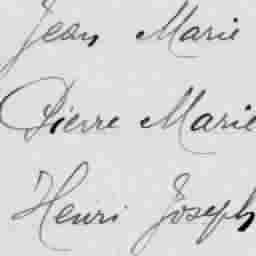 Jean Marie
Pierre Marie
Henri Joseph